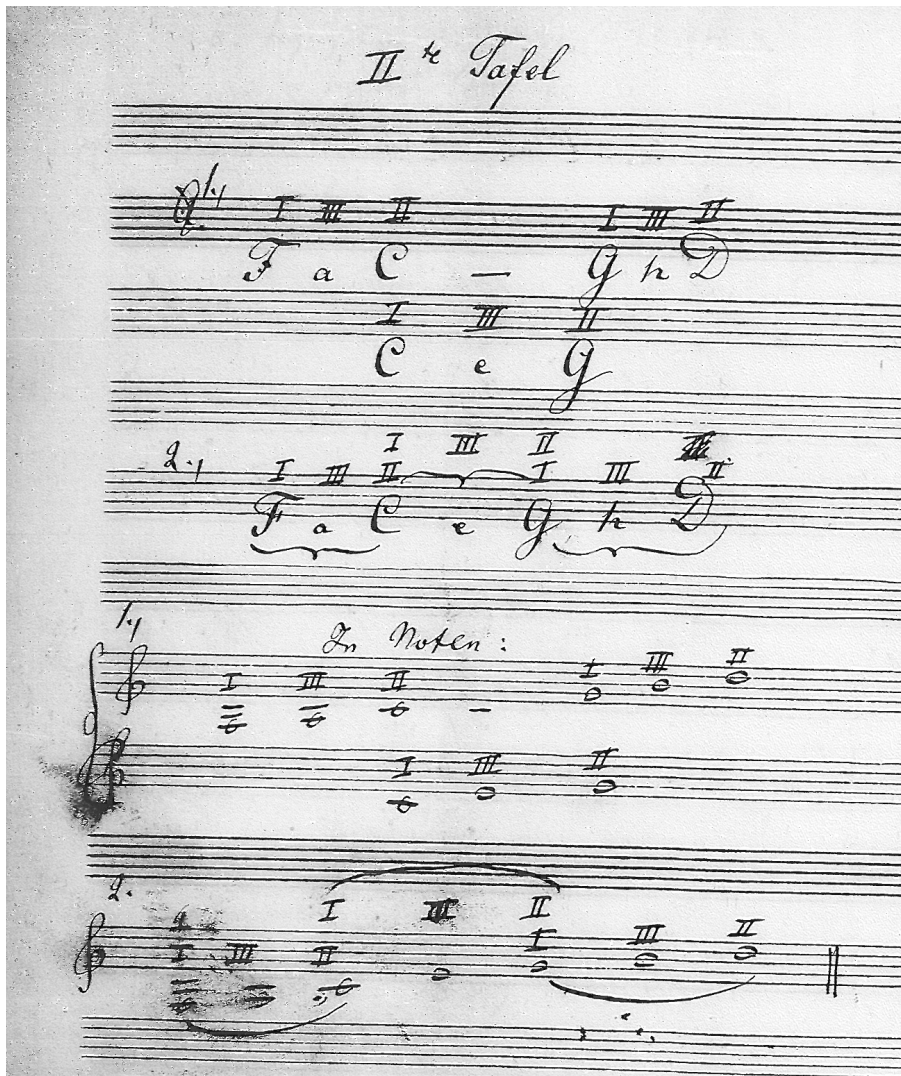 II te Tafel
1.)
I III II I III II
F a C — G h D
I III II
C e G
I III II
2.) I III II I III II.
F a C e G h D
1.)
In Noten:
I III II I III II
I III II
2.
I III II
I III II I III II